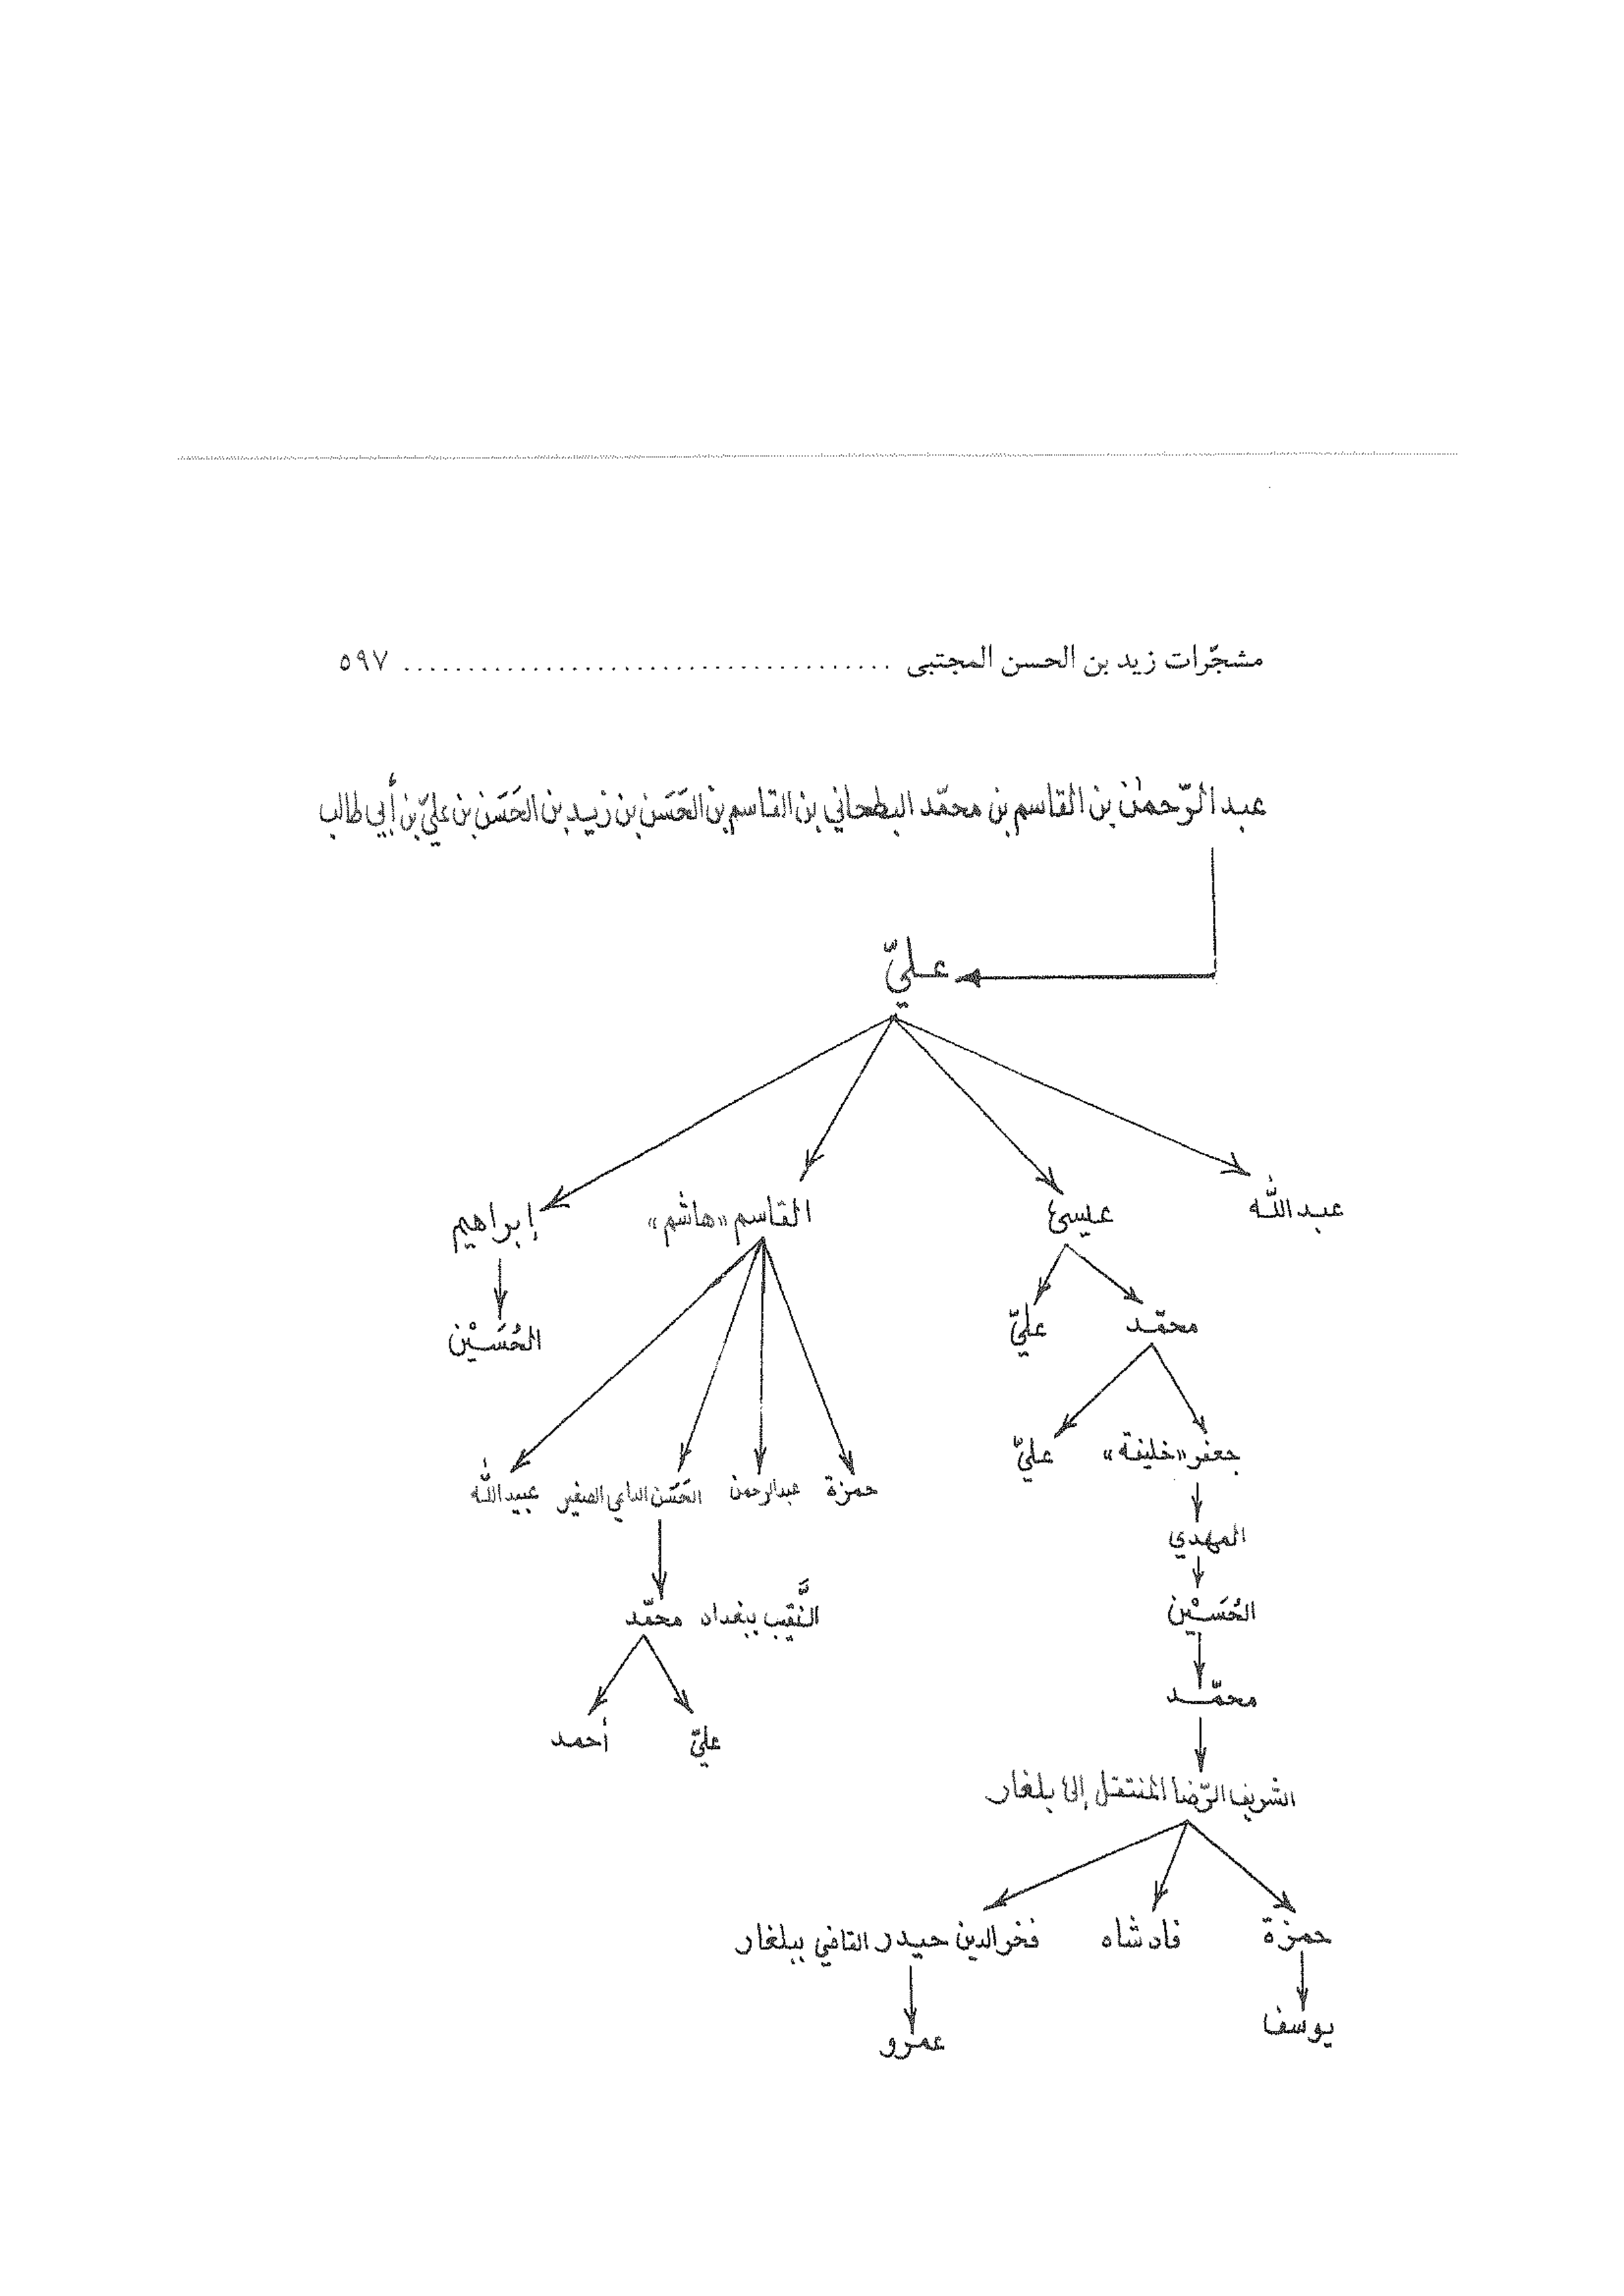 مشجّرات زيد بن الحسن المجتبى ..................................... ٥٩٧
عبد الرّحمٰن بن القاسم بن محمّد البطحاني بن القاسم بن الحَسَن بن زيد بن الحَسَن بن عليّ بن أبي طالب
عليّ
عبد اللّٰه
عيسىٰ
القاسم «هاشم»
إبراهيم
محمّد
عليّ
الحُسَيْن
جعفر «خليفة»
عليّ
حمزة
عبدالرحمن
الحَسَن الداعي الصغير
عبيد اللّٰه
المهدي
الحُسَيْن
محمّد النَّقيب ببغداد
محمّد
عليّ
أحمد
الشريف الرّضا المنتقل إلىٰ بلغار
حمزة
فادشاه
فخر الدين حيدر القاضي ببلغار
يوسف
عمرو